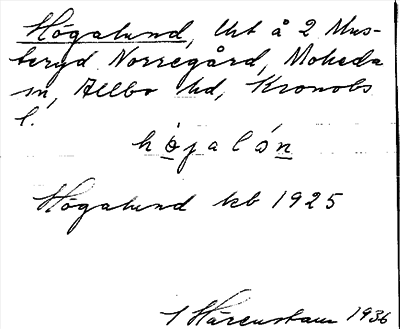 Høgalund, Ut å 2 Mus-
teryd Norregård, Moheda
sn, Allbo hd, Kronobs
l.
họjalón
Høgalund kb 1925
I Hårenstam 1936